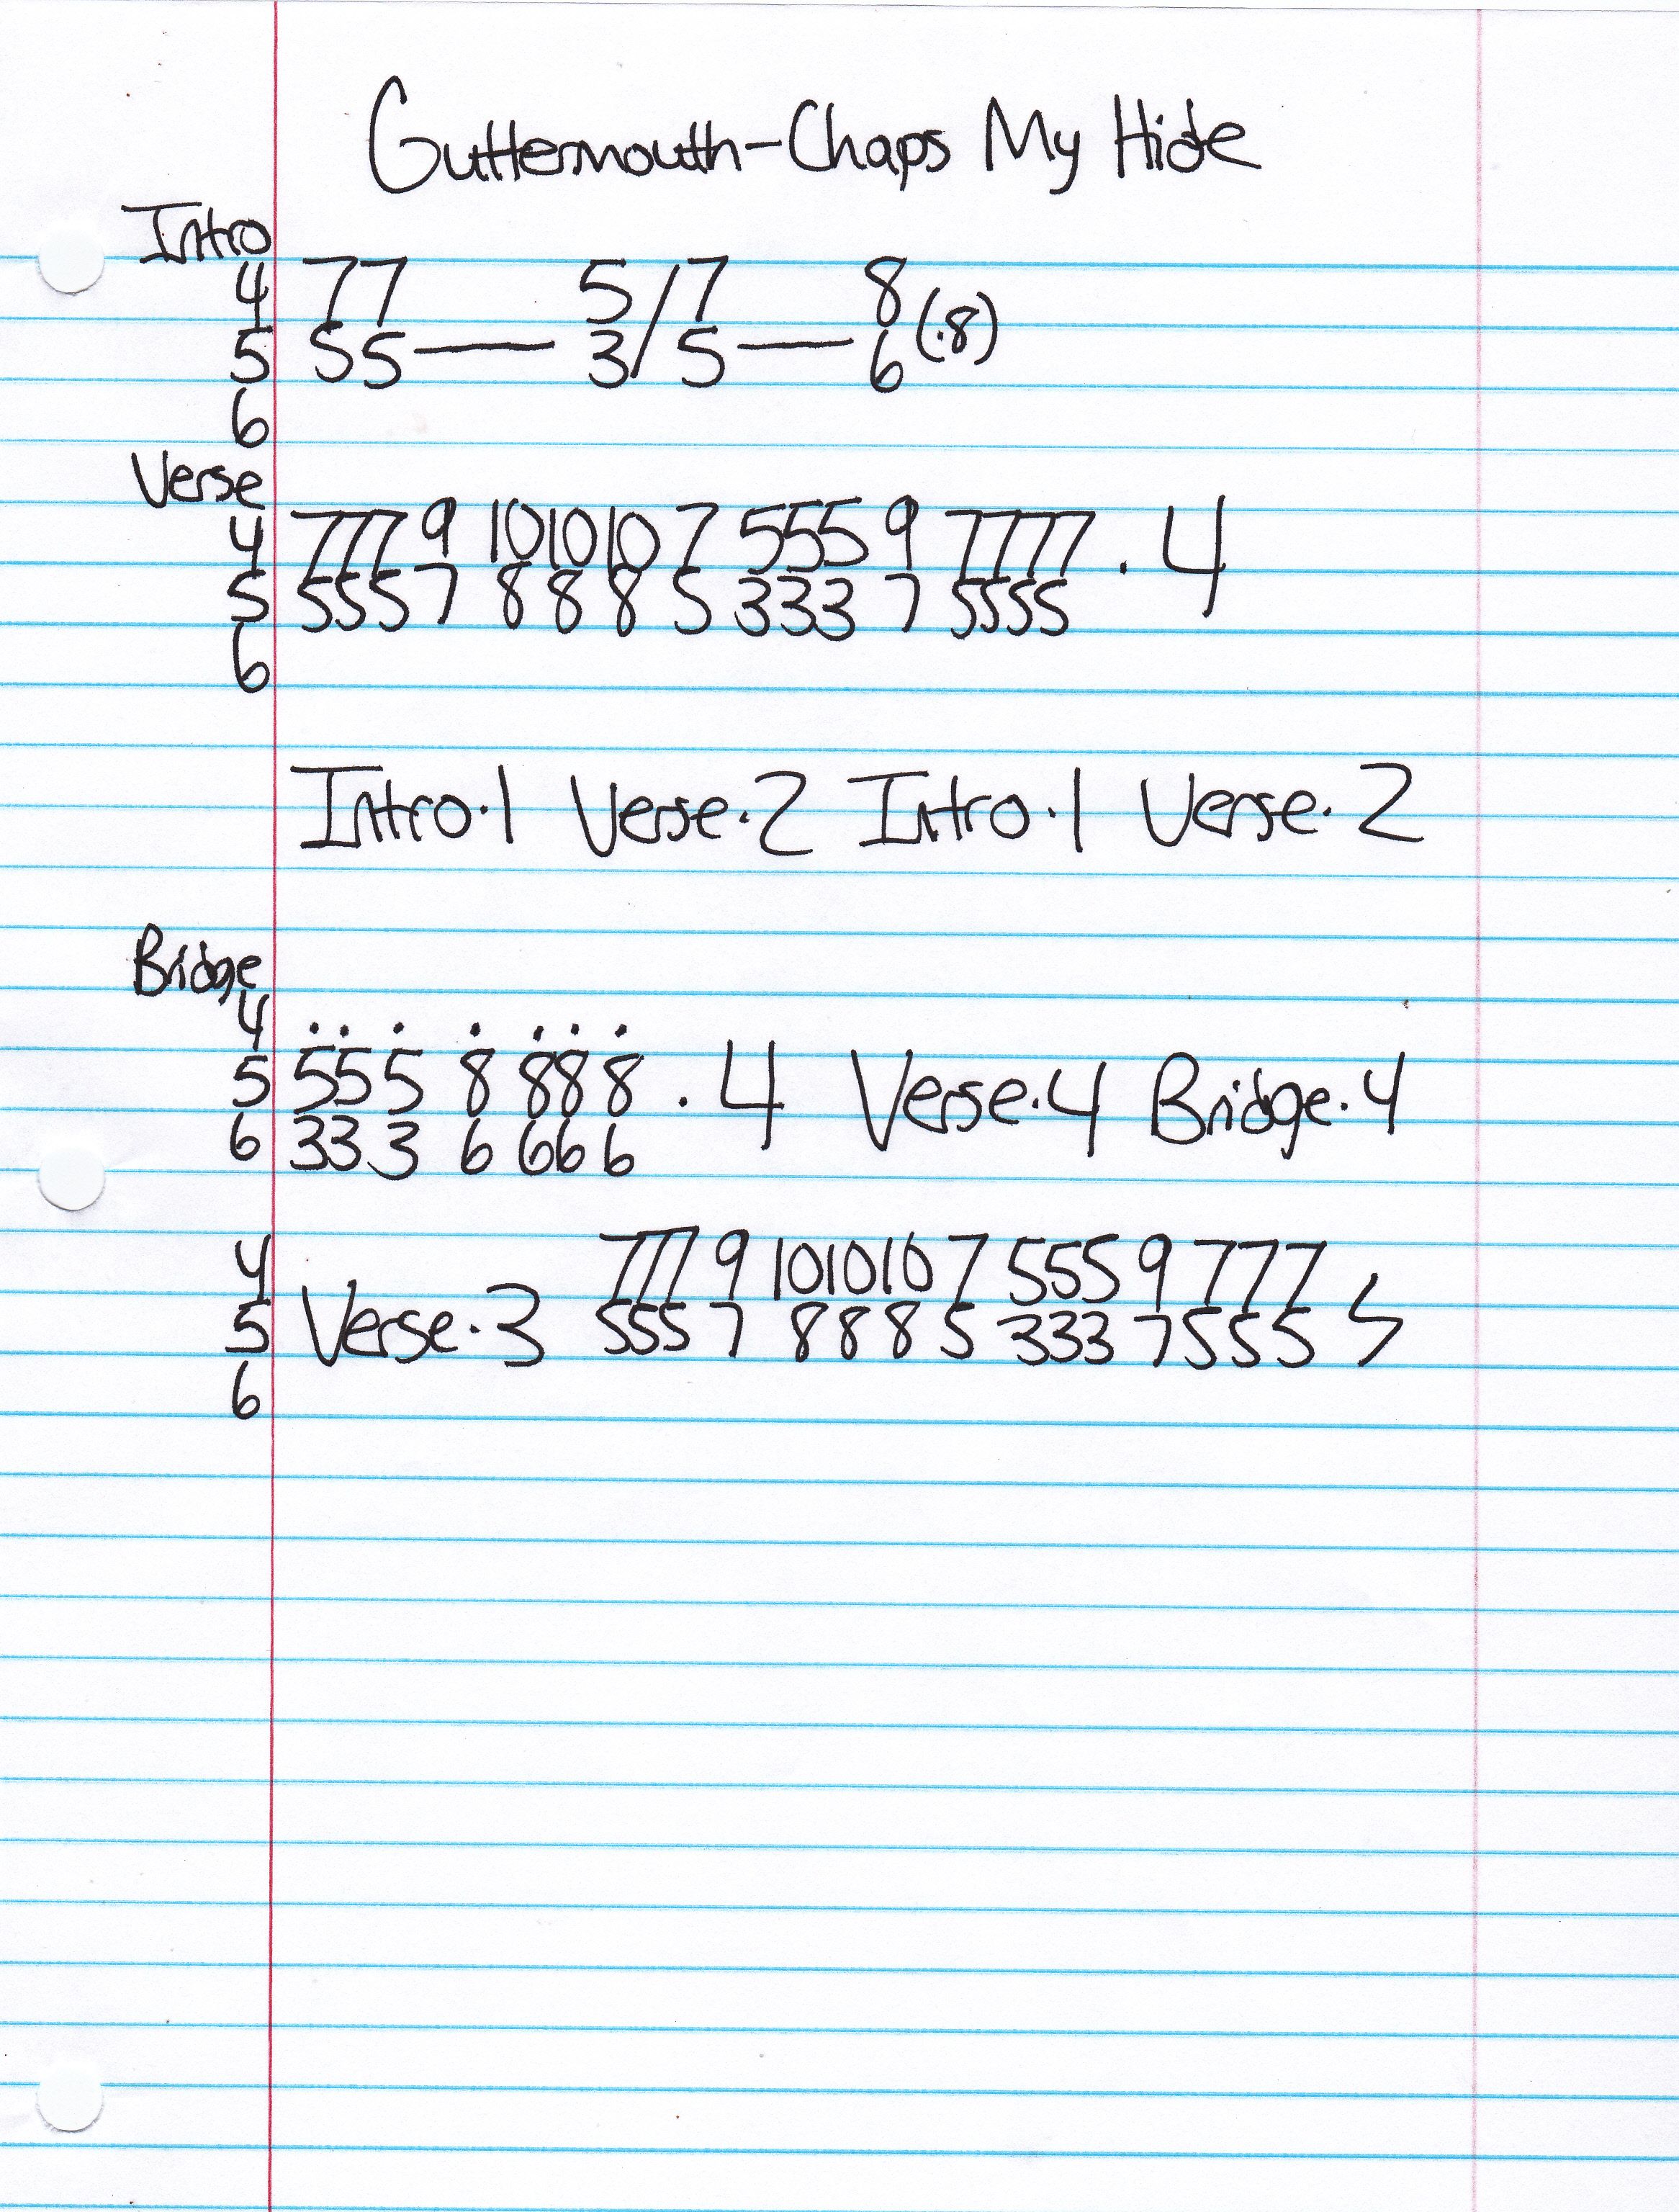 Guttermouth-Chaps My Hide
Intro
4 77 5/7 8
5 55—3/5—6 (.8)
6
Verse
4 777 9 10 10 10 7 555 9 7777 . 4
5 555 7 8 8 8 5 333 7 5555
6
Intro.1 Verse.2 Intro.1 Verse.2
Bridge
4 . . . . . . .
5 55 5 8 88 8 . 4 Verse.4 Bridge.4
6 33 3 6 66 6
4 777 9 10 10 10 7 555 9 777
5 Verse.3 555 7 8 8 8 5 333 7 555
6